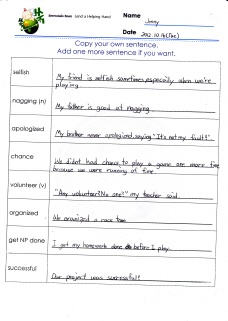 Berenstain Bears Lend a Helping Hand
Name
Jinny
Date 2012. 10. 16 (Tue)
Copy your own sentence.
Add one more sentence if you want.
selfish
My friend is selfish sometimes, especially when we're
playing.
nagging (n)
My father is good at nagging.
apologized
My brother never apologized, saying "It's not my fault!".
chance
We didn't had chance to play a game one more time
because we were running of time.
volunteer (v)
"Any volunteer? No one?" my teacher said.
organized
We organized a race team.
get NP done
I get my homework done before I play.
successful
Our project was successful!